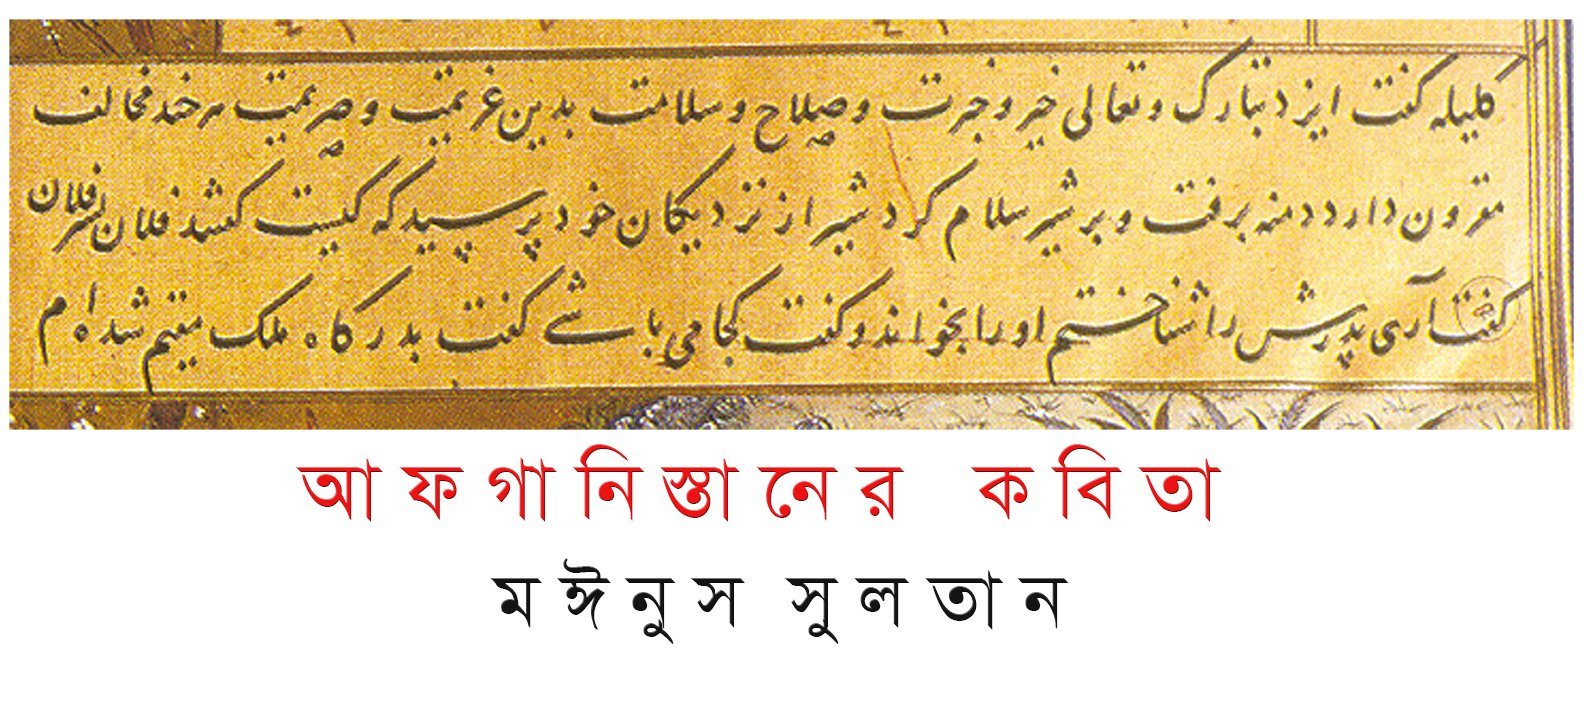 کلیله کفت ایزد تبارک و تعالی خیر و خیرت و صلاح و سلامت بدین عزیمت و صریمت هر چند مخالف
مقرون دارد دمنه برفت و بر شیر سلام کرد شیر از نزدیکان خود پرسید که کیست کفتند فلان پسر فلان
کفت آری پدرش را شناختم او را بخواند و کفت کجا می باشے کفت بدرکاه ملک مقیم شده ام
আফগানিস্তানের কবিতা
মঈনুস সুলতান